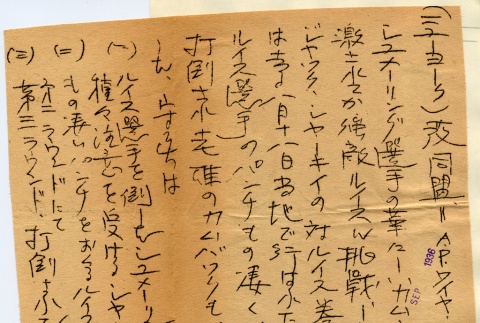 (ニューヨーク)発同盟=APワイヤ・
シュメーリング選手の華々しいカム
激されてか強敵ルイスに挑戦し
ジャック、シャーキイの対ルイス拳
は去る八月十八日当地で行はれた
ルイス選手のパンチもの凄く
打倒され老雄のカムバックも
(一) ルイス選手を倒したシュメーリ
種々注意を受けるシャ
(二) もの凄いパンチをおくるルイス
(三) 第三ラウンド、打倒され
SEP 1936